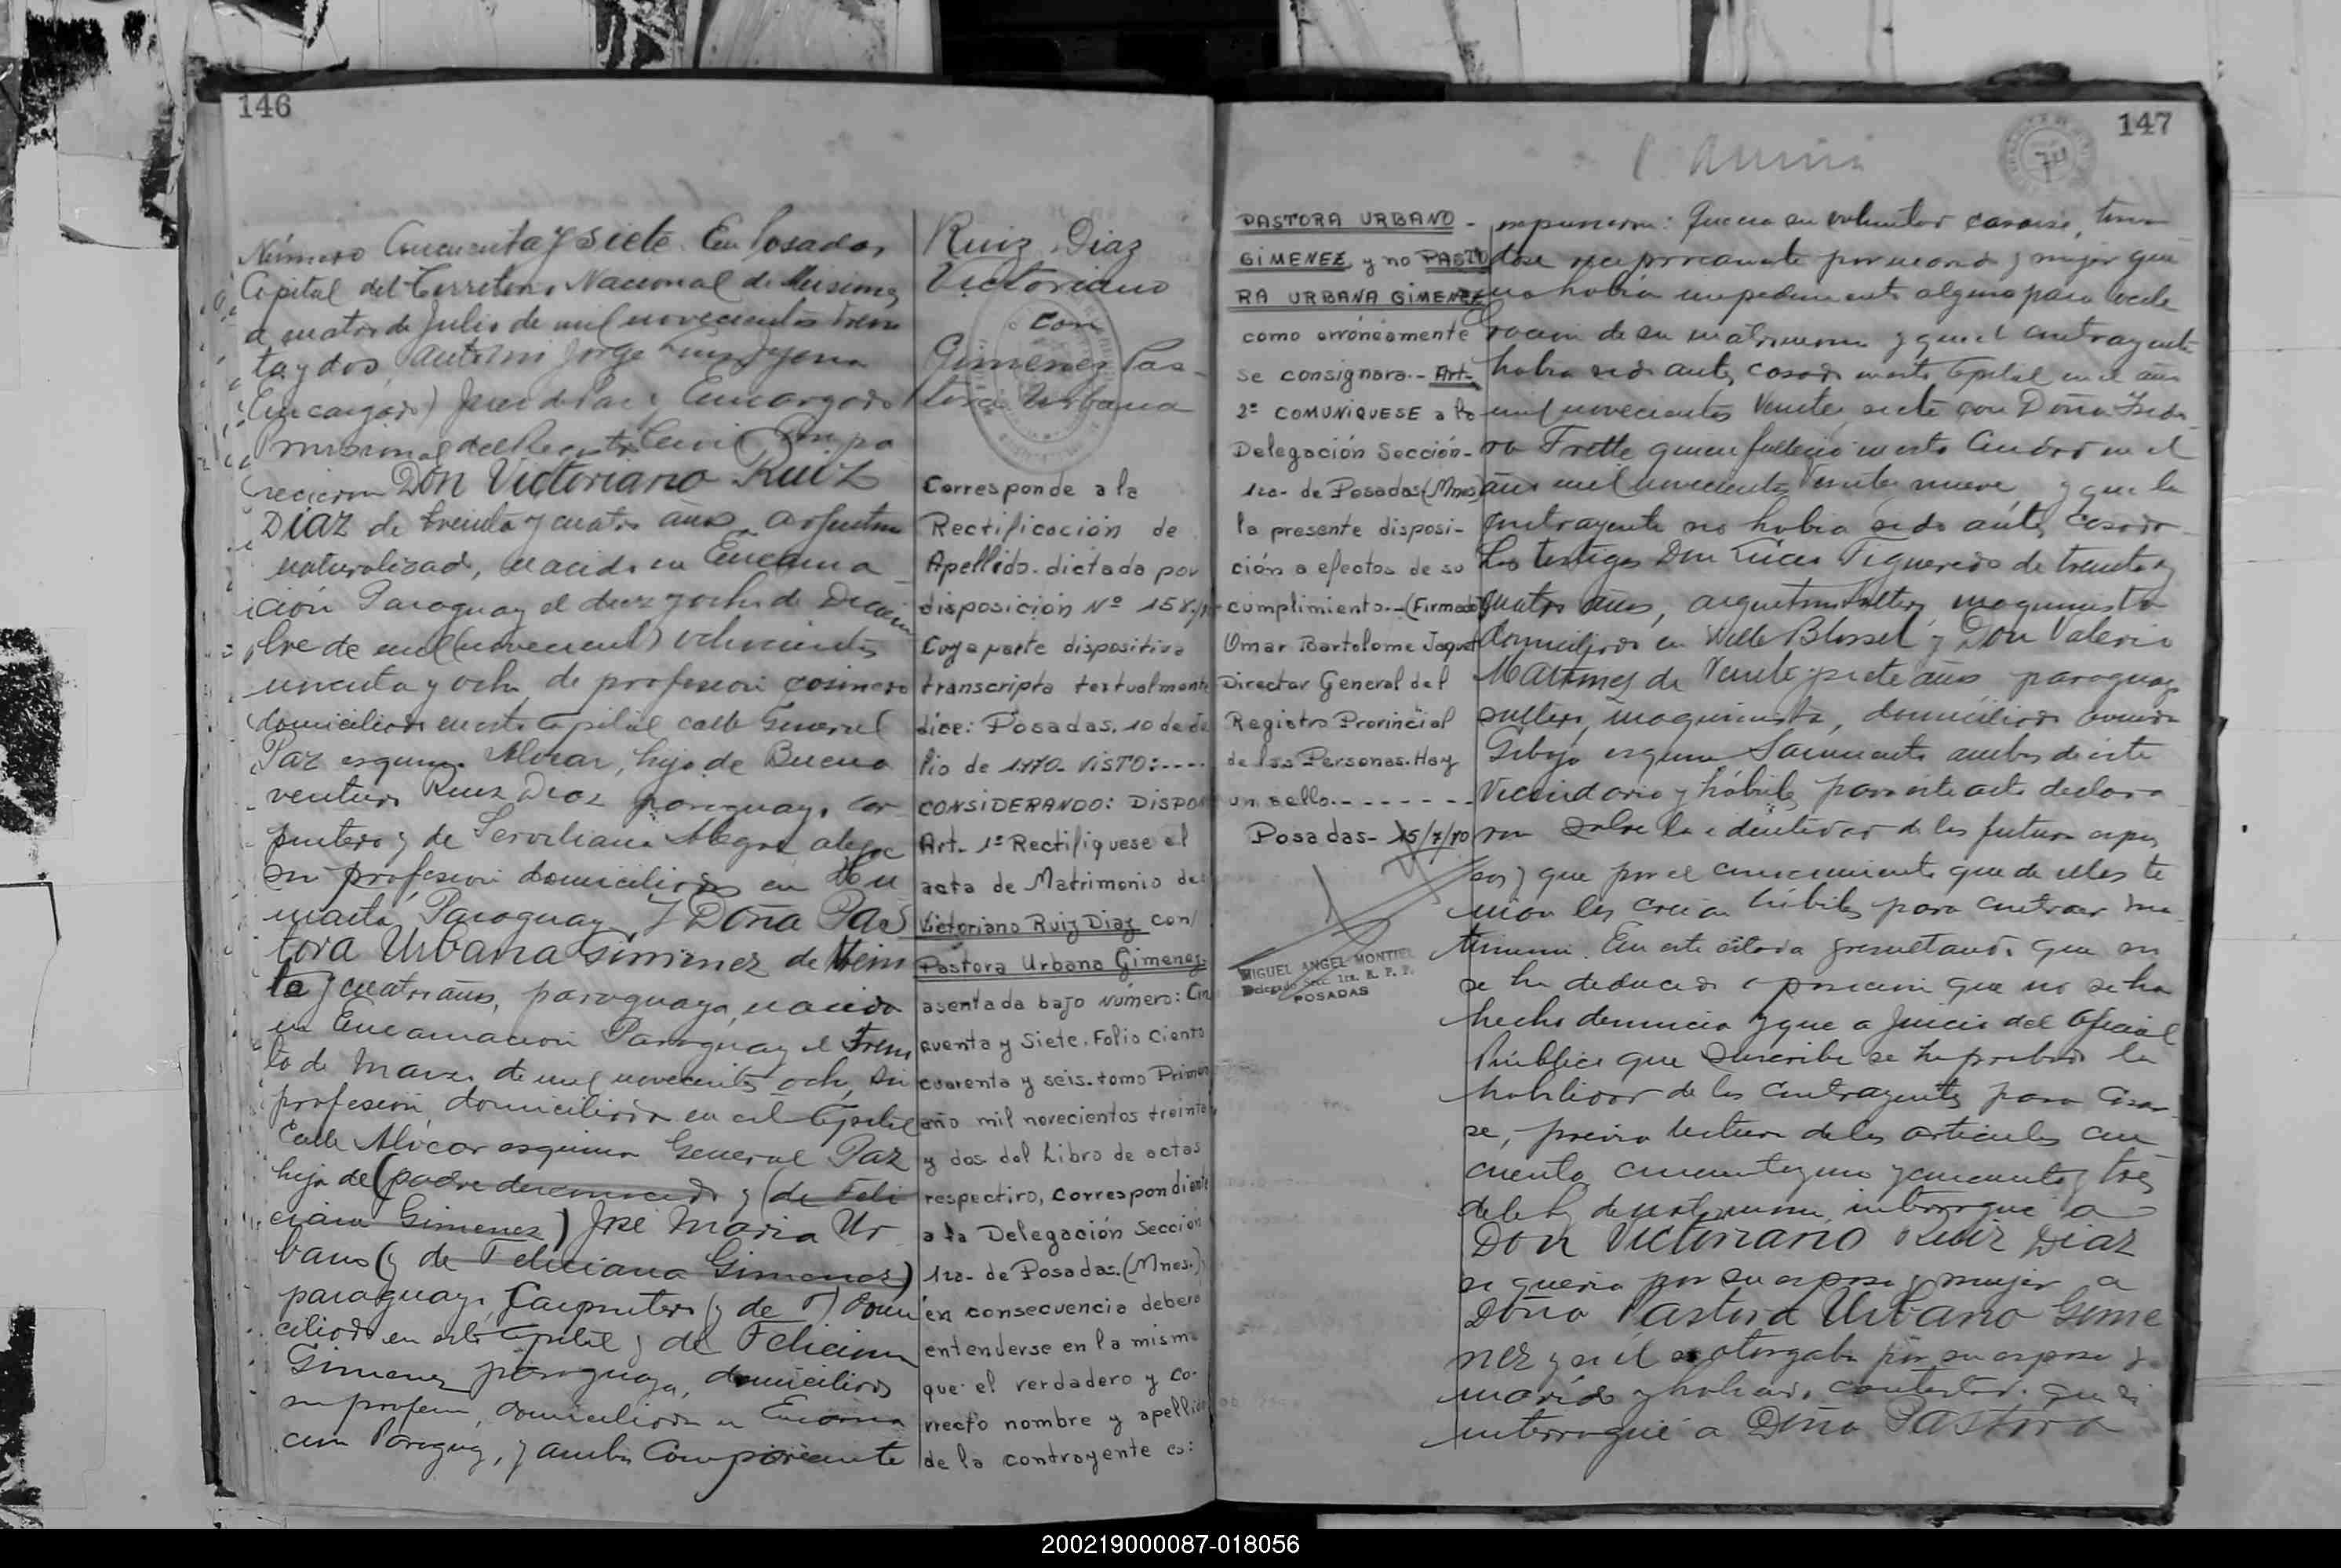 146
Número Cincuenta y siete. En Posadas,
Capital del Territorio Nacional de Misiones
a cuatro de Julio de mil novecientos trein
ta y dos, ante mi Jorge
Encargado) Juez de Paz y Encargado
Provisional del Registro Civil Compa
recieron Don Victoriano Ruiz
Diaz de treinta y cuatro años, argentino
naturalizado, nacido en Encarna
ción Paraguay el diez y ocho de Diciem
bre de mil (novecient) ochocientos
y ocho, de profesion cosinero
domiciliado en esta Capital calle General
Paz esquina Alvear, hijo de Buena
ventura Ruiz Diaz paraguayo, car
pintero y de Serviliana Alegre
sin profesion domiciliados en Hu
maitá, Paraguay, y Doña Pas
tora Urbana Gimenez de Vein
te y cuatro años, paraguaya, nacida
en Encarnacion Paraguay el trein
ta de Marzo de mil novecientos ocho, sin
profesión, domiciliada en esta Capital
Calle Alvear esquina General Paz
hija de (padre desconocido y (de Feli
ciana Gimenez) José Maria Ur
bano (y de Feliciana Gimenez)
paraguayo, Carpintero (y de F) domi
ciliado en esta Capital y de Feliciana
Gimenez paraguaya, domiciliada
sin profesion, domiciliada en Encarna
cion Paraguay, y ambos Compareciente
Ruiz Diaz
Victoriano
con
Gimenez Pas-
tora Urbana
Corresponde a la
Rectificación de
Apellido. dictada por
disposición Nº 158/
Cuya parte dispositiva
transcripta textualmente
dice: Posadas. 10 de Ju
lio de 1970- VISTO:----
CONSIDERANDO: DISPON
Art. 1º Rectifiquese el
acta de Matrimonio de:
Victoriano Ruiz Diaz con/
Pastora Urbana Gimenez
asentada bajo Número: Cin
cuenta y Siete. Folio Ciento
cuarenta y seis. tomo Primero
año mil novecientos treinta
y dos del Libro de actas
respectivo, correspondiente
a la Delegación Sección
1ra- de Posadas. (Mnes.),
en consecuencia deberá
entenderse en la misma
que el verdadero y co-
rrecto nombre y apellido
de la contrayente es:
147
74
PASTORA URBANO -
GIMENEZ y no PASTO
RA URBANA GIMENEZ
como erróneamente
se consignara.- Art-
2º COMUNIQUESE a la
Delegación Sección-
1ra- de Posadas (Mnes)
la presente disposi-
ción a efectos de su
cumplimiento.-(Firmado)
Omar Bartolome Jaquet
Director General del
Registro Provincial
de las Personas. Hay
un sello.- - - - - - -
Posadas- 15/7/70
MIGUEL ANGEL MONTIEL
Delegado Secc. 1ra. R. P. P.
POSADAS
respusieron: Que era su voluntad casarse, toman
dose reciprocamente por marido y mujer que
no habia impedimento alguno para la cele
bracion de su matrimonio y que el contrayente
habia sido antes casado en esta Capital en el año
mil novecientos Veinte y siete con Doña Isido
ra Frette quien fallecio en esta Ciudad en el
año mil novecientos Veinte nueve, y que la
contrayente no habia sido antes casada
Los testigos Don Lucas Figueredo de treinta y
cuatro años, argentino soltero, maquinista
domiciliado en Villa Blosset y Don Valerio
Martinez de Veinte y siete años, paraguayo
soltero, maquinista, domiciliado avenida
esquina Sarmiento ambos de este
Vecindario y hábiles para este acto declara
ron sobre la identidad de los futuros espo
sos y que por el conocimiento que de ellos te
nian los creian hábiles para contraer ma
trimonio. En este estado y resultando que no
se ha deducido oposicion que no se ha
hecho denuncia y que a juicio del Oficial
Público que suscribe se ha probado la
habilidad de los contrayentes para casar
se, previa lectura de los articulos cin
cuenta, cincuenta y uno y cincuenta y tres
de la ley de matrimonio, interrogué a
Don Victoriano Ruiz Diaz
si queria por su esposa y mujer a
Doña Pastora Urbano Gime
nez y si él se otorgaba por su esposo y
marido y habiendo contestado que si
interrogué a Doña Pastora
200219000087-018056